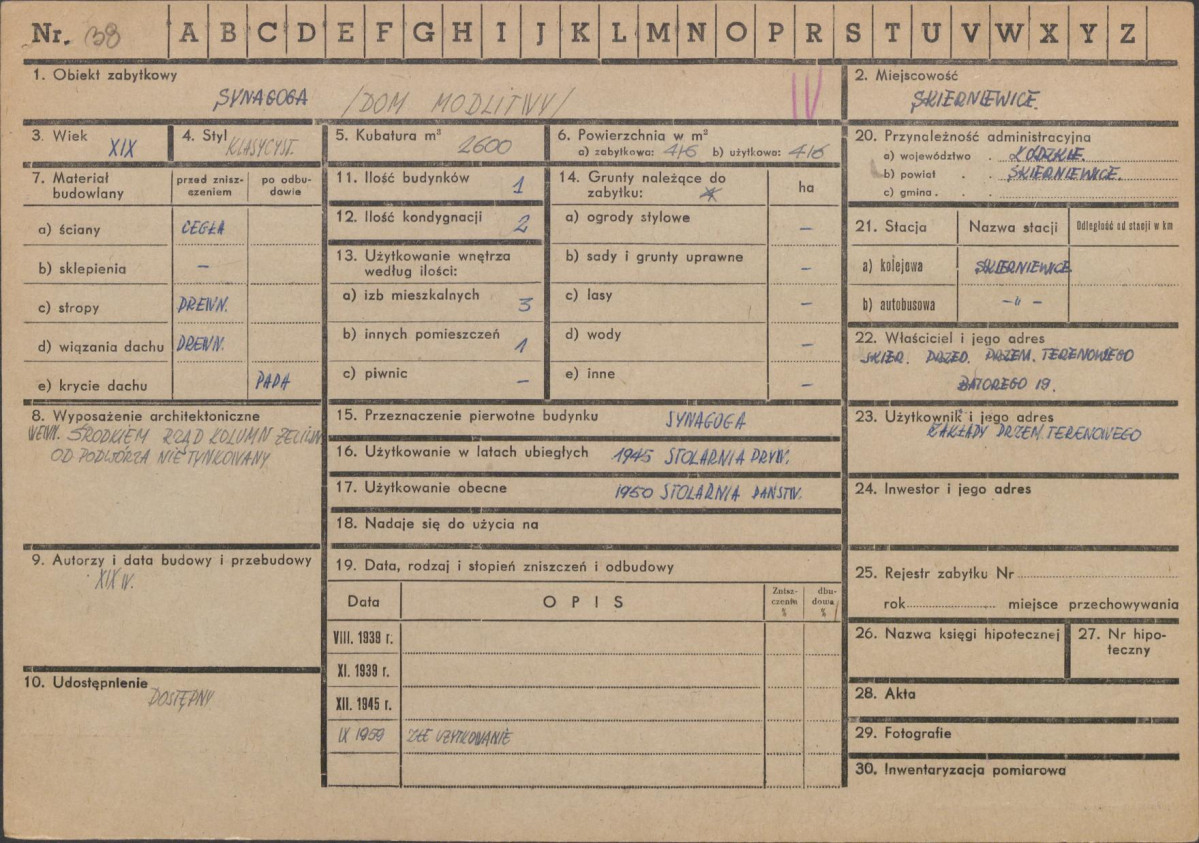 Nr. 38 A B C D E F G H I J K L M N O P R S T U V W X Y Z
1. Obiekt zabytkowy
SYNAGOGA /DOM MODLITWY/ IV
2. Miejscowość
SKIERNIEWICE.
3. Wiek XIX
4. Styl KLASYCYST.
5. Kubatura m³ 2600
6. Powierzchnia w m²
a) zabytkowa: 416 b) użytkowa: 416
20. Przynależność administracyjna
a) województwo . ŁÓDZKIE.
b) powiat . . SKIERNIEWICE.
c) gmina . . .
7. Materiał budowlany
przed znisz-
czeniem
po odbu-
dowie
a) ściany CEGŁA
b) sklepienia –
c) stropy DREWN.
d) wiązania dachu DREWN.
e) krycie dachu PAPA
11. Ilość budynków 1
12. Ilość kondygnacji 2
13. Użytkowanie wnętrza
według ilości:
a) izb mieszkalnych 3
b) innych pomieszczeń 1
c) piwnic –
14. Grunty należące do
zabytku:
ha
a) ogrody stylowe –
b) sady i grunty uprawne –
c) lasy –
d) wody –
e) inne –
21. Stacja Nazwa stacji Odległość od stacji w km
a) kolejowa SKIERNIEWICE
b) autobusowa –"–
22. Właściciel i jego adres
SKIER. PRZED. PRZEM. TERENOWEGO
BATOREGO 19.
8. Wyposażenie architektoniczne
WEWN. ŚRODKIEM RZĄD KOLUMN ŻELIWN
OD PODWÓRZA NIE TYNKOWANY.
15. Przeznaczenie pierwotne budynku SYNAGOGA
16. Użytkowanie w latach ubiegłych 1945 STOLARNIA PRYW.
17. Użytkowanie obecne 1950 STOLARNIA PAŃSTW.
18. Nadaje się do użycia na
23. Użytkownik i jego adres
ZAKŁADY PRZEM. TERENOWEGO
24. Inwestor i jego adres
9. Autorzy i data budowy i przebudowy
XIX W.
10. Udostępnienie
DOSTĘPNY
19. Data, rodzaj i stopień zniszczeń i odbudowy
Data OPIS
Znisz-
czenia
%
dbu-
dowa
%
VIII. 1939 r.
XI. 1939 r.
XII. 1945 r.
IX 1959 ZŁE UŻYTKOWANIE
25. Rejestr zabytku Nr
rok miejsce przechowywania
26. Nazwa księgi hipotecznej
27. Nr hipo-
teczny
28. Akta
29. Fotografie
30. Inwentaryzacja pomiarowa